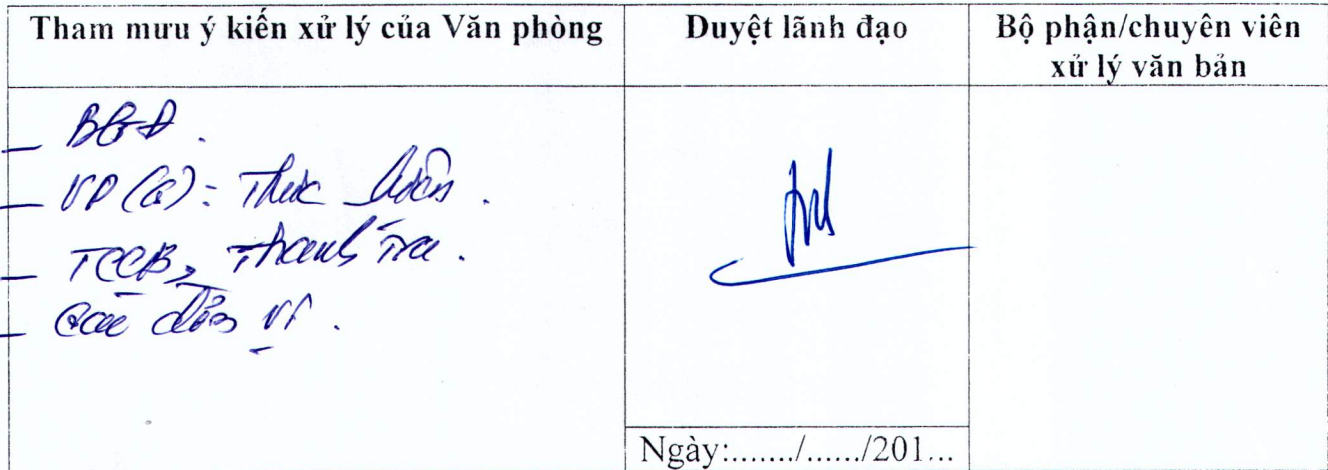 Tham mưu ý kiến xử lý của Văn phòng
Duyệt lãnh đạo
Bộ phận/chuyên viên
xử lý văn bản
- BGĐ.
- VP (): Thực hiện.
- TCCB, Thanh Tra.
- Các đơn vị.
Ngày:......./....../201...